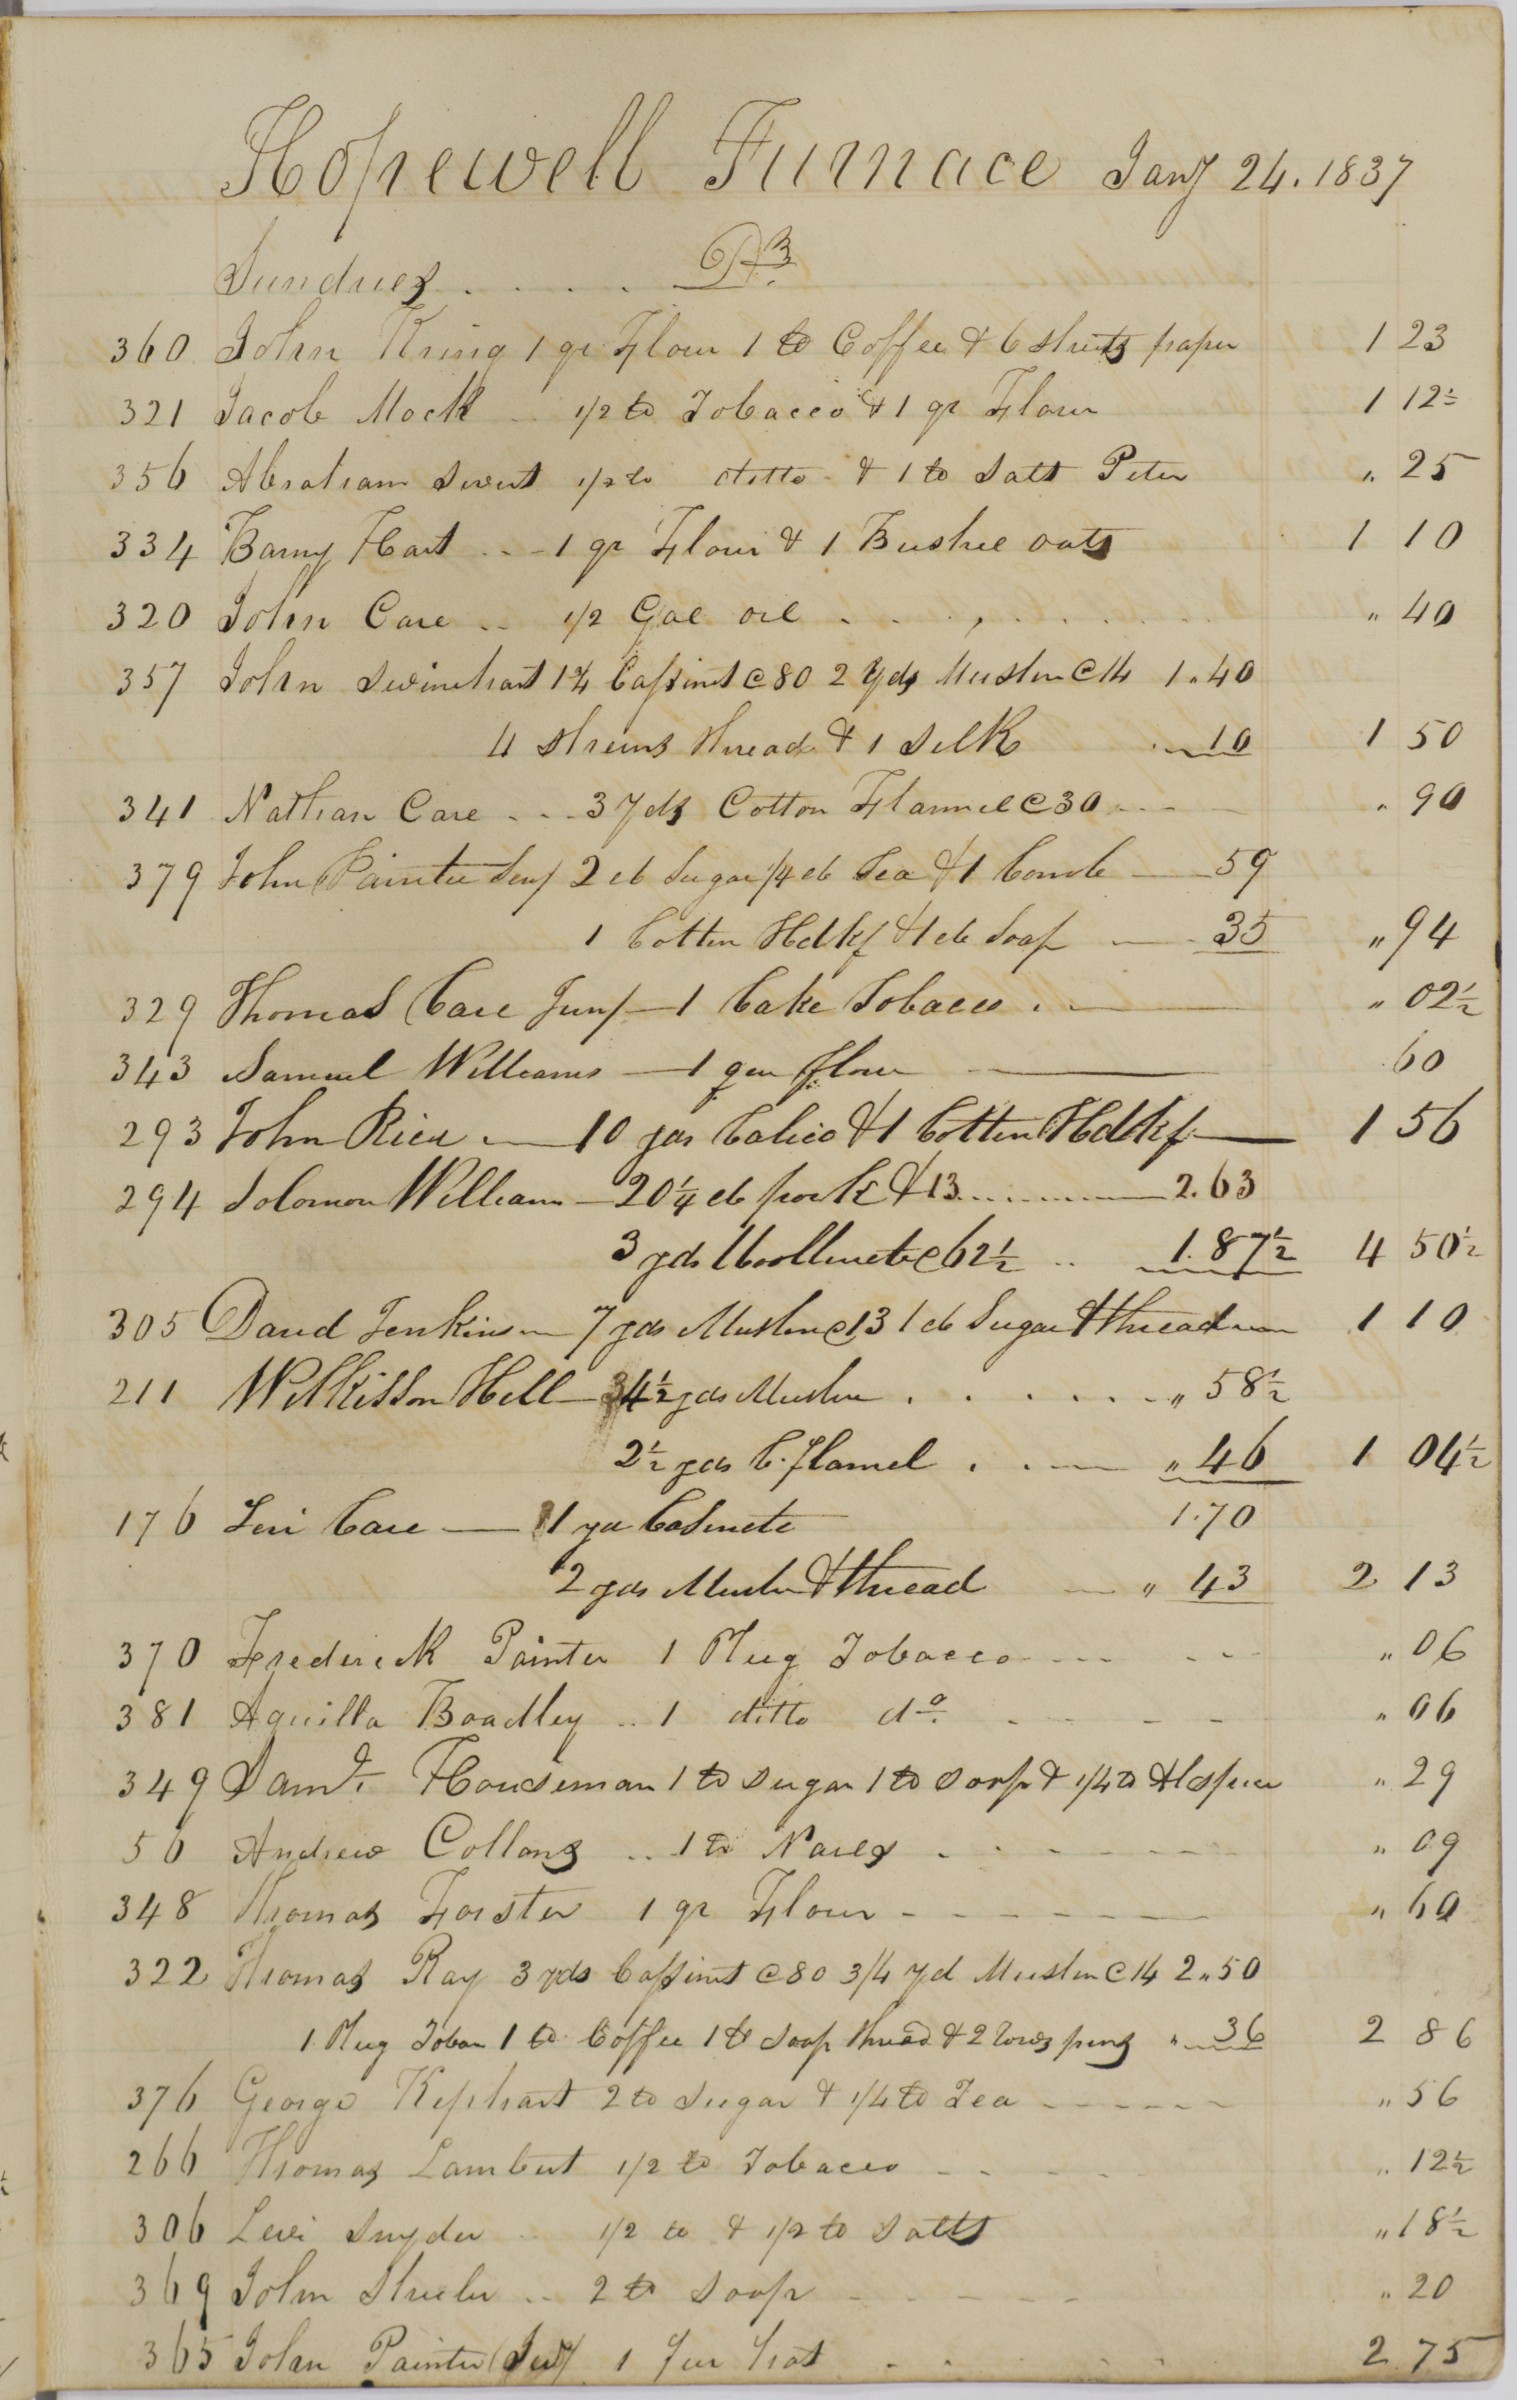 Hopewell Furnace Jany 24. 1837
Sundries . . . . Drs
360 John Kring 1 qr Flour 1 lb Coffee & 6 sheets paper 1 23
321 Jacob Mock 1/2 lb Tobacco & 1 qr Flour 1 12½
356 Abraham Swert 1/2 lb ditto & 1 lb Salt Peter " 25
334 Barny Hart . . - 1 qr Flour & 1 Bushel oats 1 10
320 John Care .. 1/2 Gal oil . . . . . . . " 40
357 John Swinehart 1¾ Cassinet @ 80 2 Yds Muslin @ 14 1 " 40
4 skeins thread & 1 Silk " 10 1 50
341 Nathan Care . . - 3 Yds Cotton Flannel @ 30 - - - " 90
379 John Painter Seny 2 lb Sugar 1/4 lb Tea & 1 Comb — 59
1 Cotton Hdkf & 1 lb Soap — 35 " 94
329 Thomas Care Juny — 1 Cake Tobacco . — " 02½
343 Samuel Williams — 1 qur flour — 60
293 John Rica — 10 yds Calico & 1 Cotton Hdkf — 1 56
294 Solomon Williams — 20¼ lb pork @ 13 . . . . . 2.63
3 yds Woollinete @ 62½ .. 1.87½ 4 50½
305 David Jenkins — 7 yds Muslin @ 13 1 lb Sugar & thread 1 10
211 Wilkisson Hill — 4½ yds Muslin . . . . . . " 58½
2½ yds C. flannel . . — " 46 1 04½
176 Levi Care — 1 yd Casinete 1.70
2 yds Muslin & thread — " 43 2 13
370 Frederick Painter 1 Plug Tobacco - - - - - - " 06
381 Aquilla Boadley .. 1 ditto do. - - - - " 06
349 Saml. Houseman 1 lb Sugar 1 lb Soap & 1/4 lb Alspice " 29
56 Andrew Collans .. 1 lb Nails . - - - - - " 09
348 Thomas Forster 1 qr Flour - - - - - - " 60
322 Thomas Ray 3 yds Cassinet @ 80 3/4 yd Muslin @ 14 2 " 50
1 Plug Tobac 1 lb Coffee 1 lb Soap thread & 2 rows pins " 36 2 86
376 George Kephart 2 lb Sugar & 1/4 lb Tea - - - - - - " 56
266 Thomas Lambert 1/2 lb Tobacco - - - - " 12½
306 Levi Snyder 1/2 lb & 1/2 lb Salts " 18½
369 John Sheeler .. 2 lb Soap - - - - - " 20
365 John Painter (Juny) 1 Fur Hat . . . . . 2 75